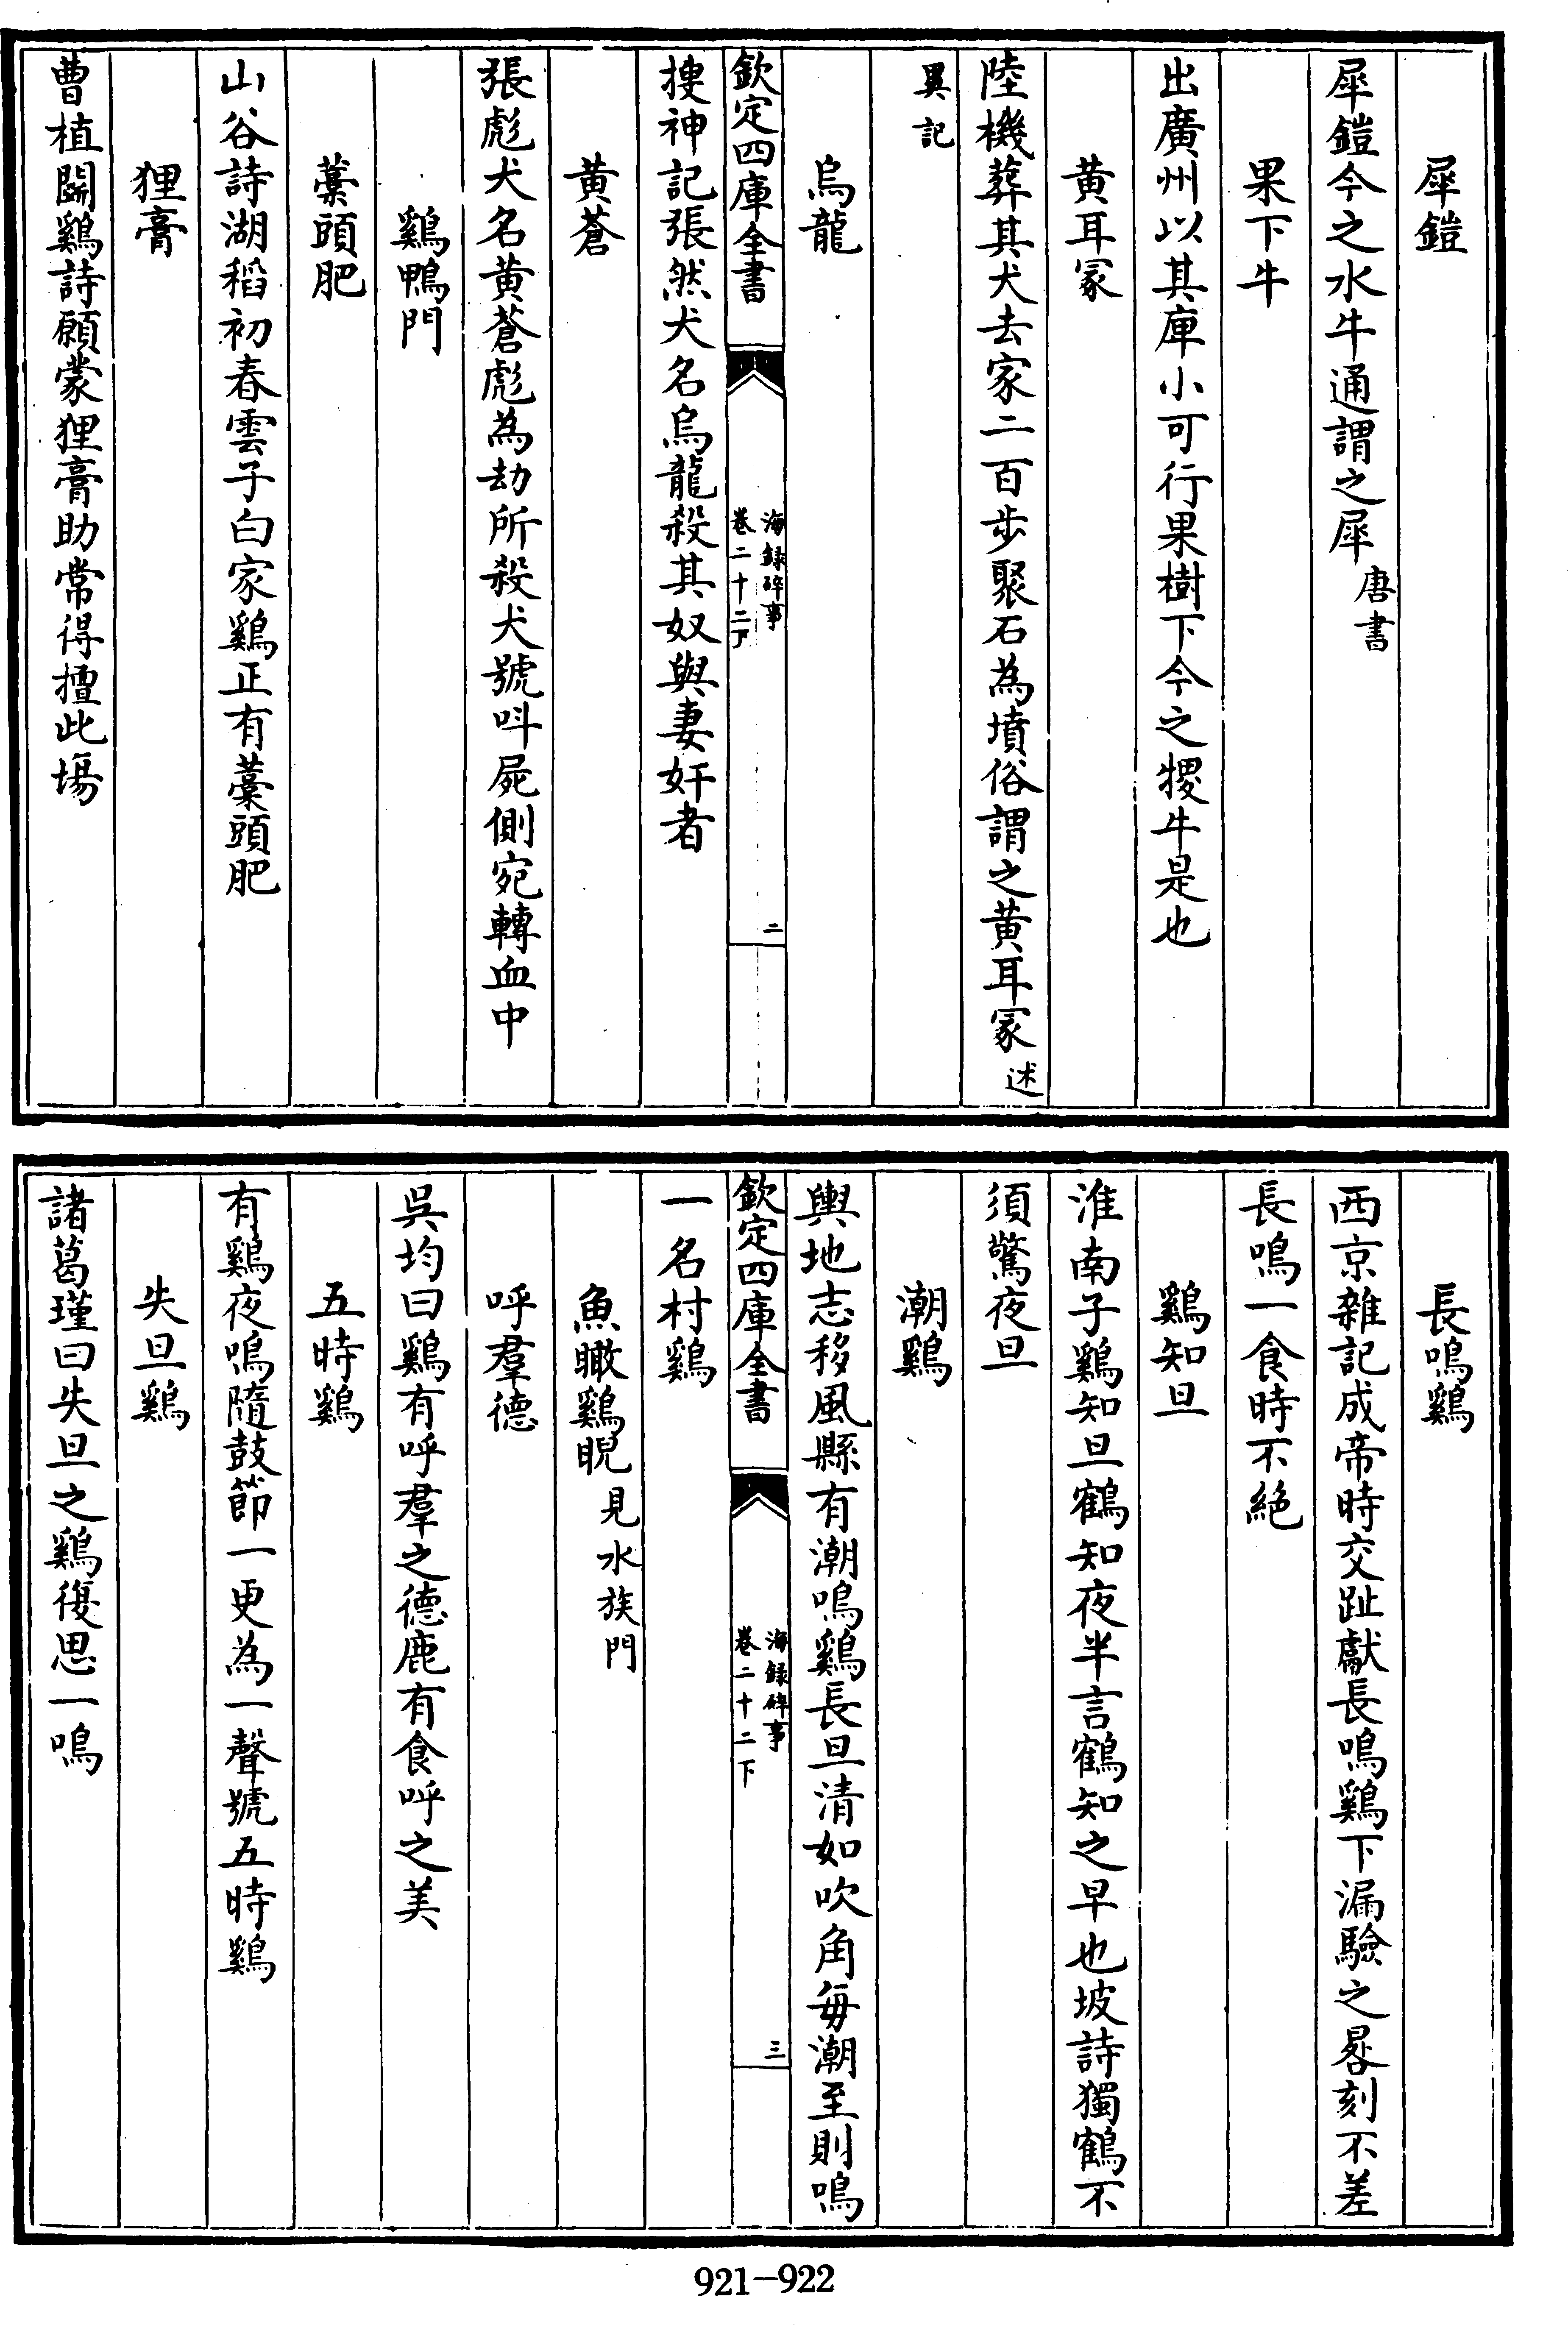 犀鎧
犀鎧今之水牛通謂之犀唐書
果下牛
出廣州以其庳小可行果樹下今之犪牛是也
黄耳冢
陸機葬其犬去家二百步聚石為墳俗謂之黄耳冢述
異記
烏龍
欽定四庫全書
海録碎事
卷二十二下
二
搜神記張然犬名烏龍殺其奴與妻奸者
黄蒼
張彪犬名黄蒼彪為劫所殺犬號呌屍側宛轉血中
鷄鴨門
藁頭肥
山谷詩湖稻初舂雲子白家鷄正有藁頭肥
狸膏
曹植鬭鷄詩願蒙狸膏助常得擅此塲
長鳴鷄
西京雜記成帝時交趾獻長鳴鷄下漏驗之晷刻不差
長鳴一食時不絶
鷄知旦
淮南子鷄知旦鶴知夜半言鶴知之早也坡詩獨鶴不
須驚夜旦
潮鷄
輿地志移風縣有潮鳴鷄長旦清如吹角每潮至則鳴
欽定四庫全書
海録碎事
卷二十二下
三
一名村鷄
魚瞰鷄睨見水族門
呼羣德
吳均曰鷄有呼羣之德鹿有食呼之美
五時鷄
有鷄夜鳴隨鼓節一更為一聲號五時鷄
失旦鷄
諸葛瑾曰失旦之鷄復思一鳴
921-922